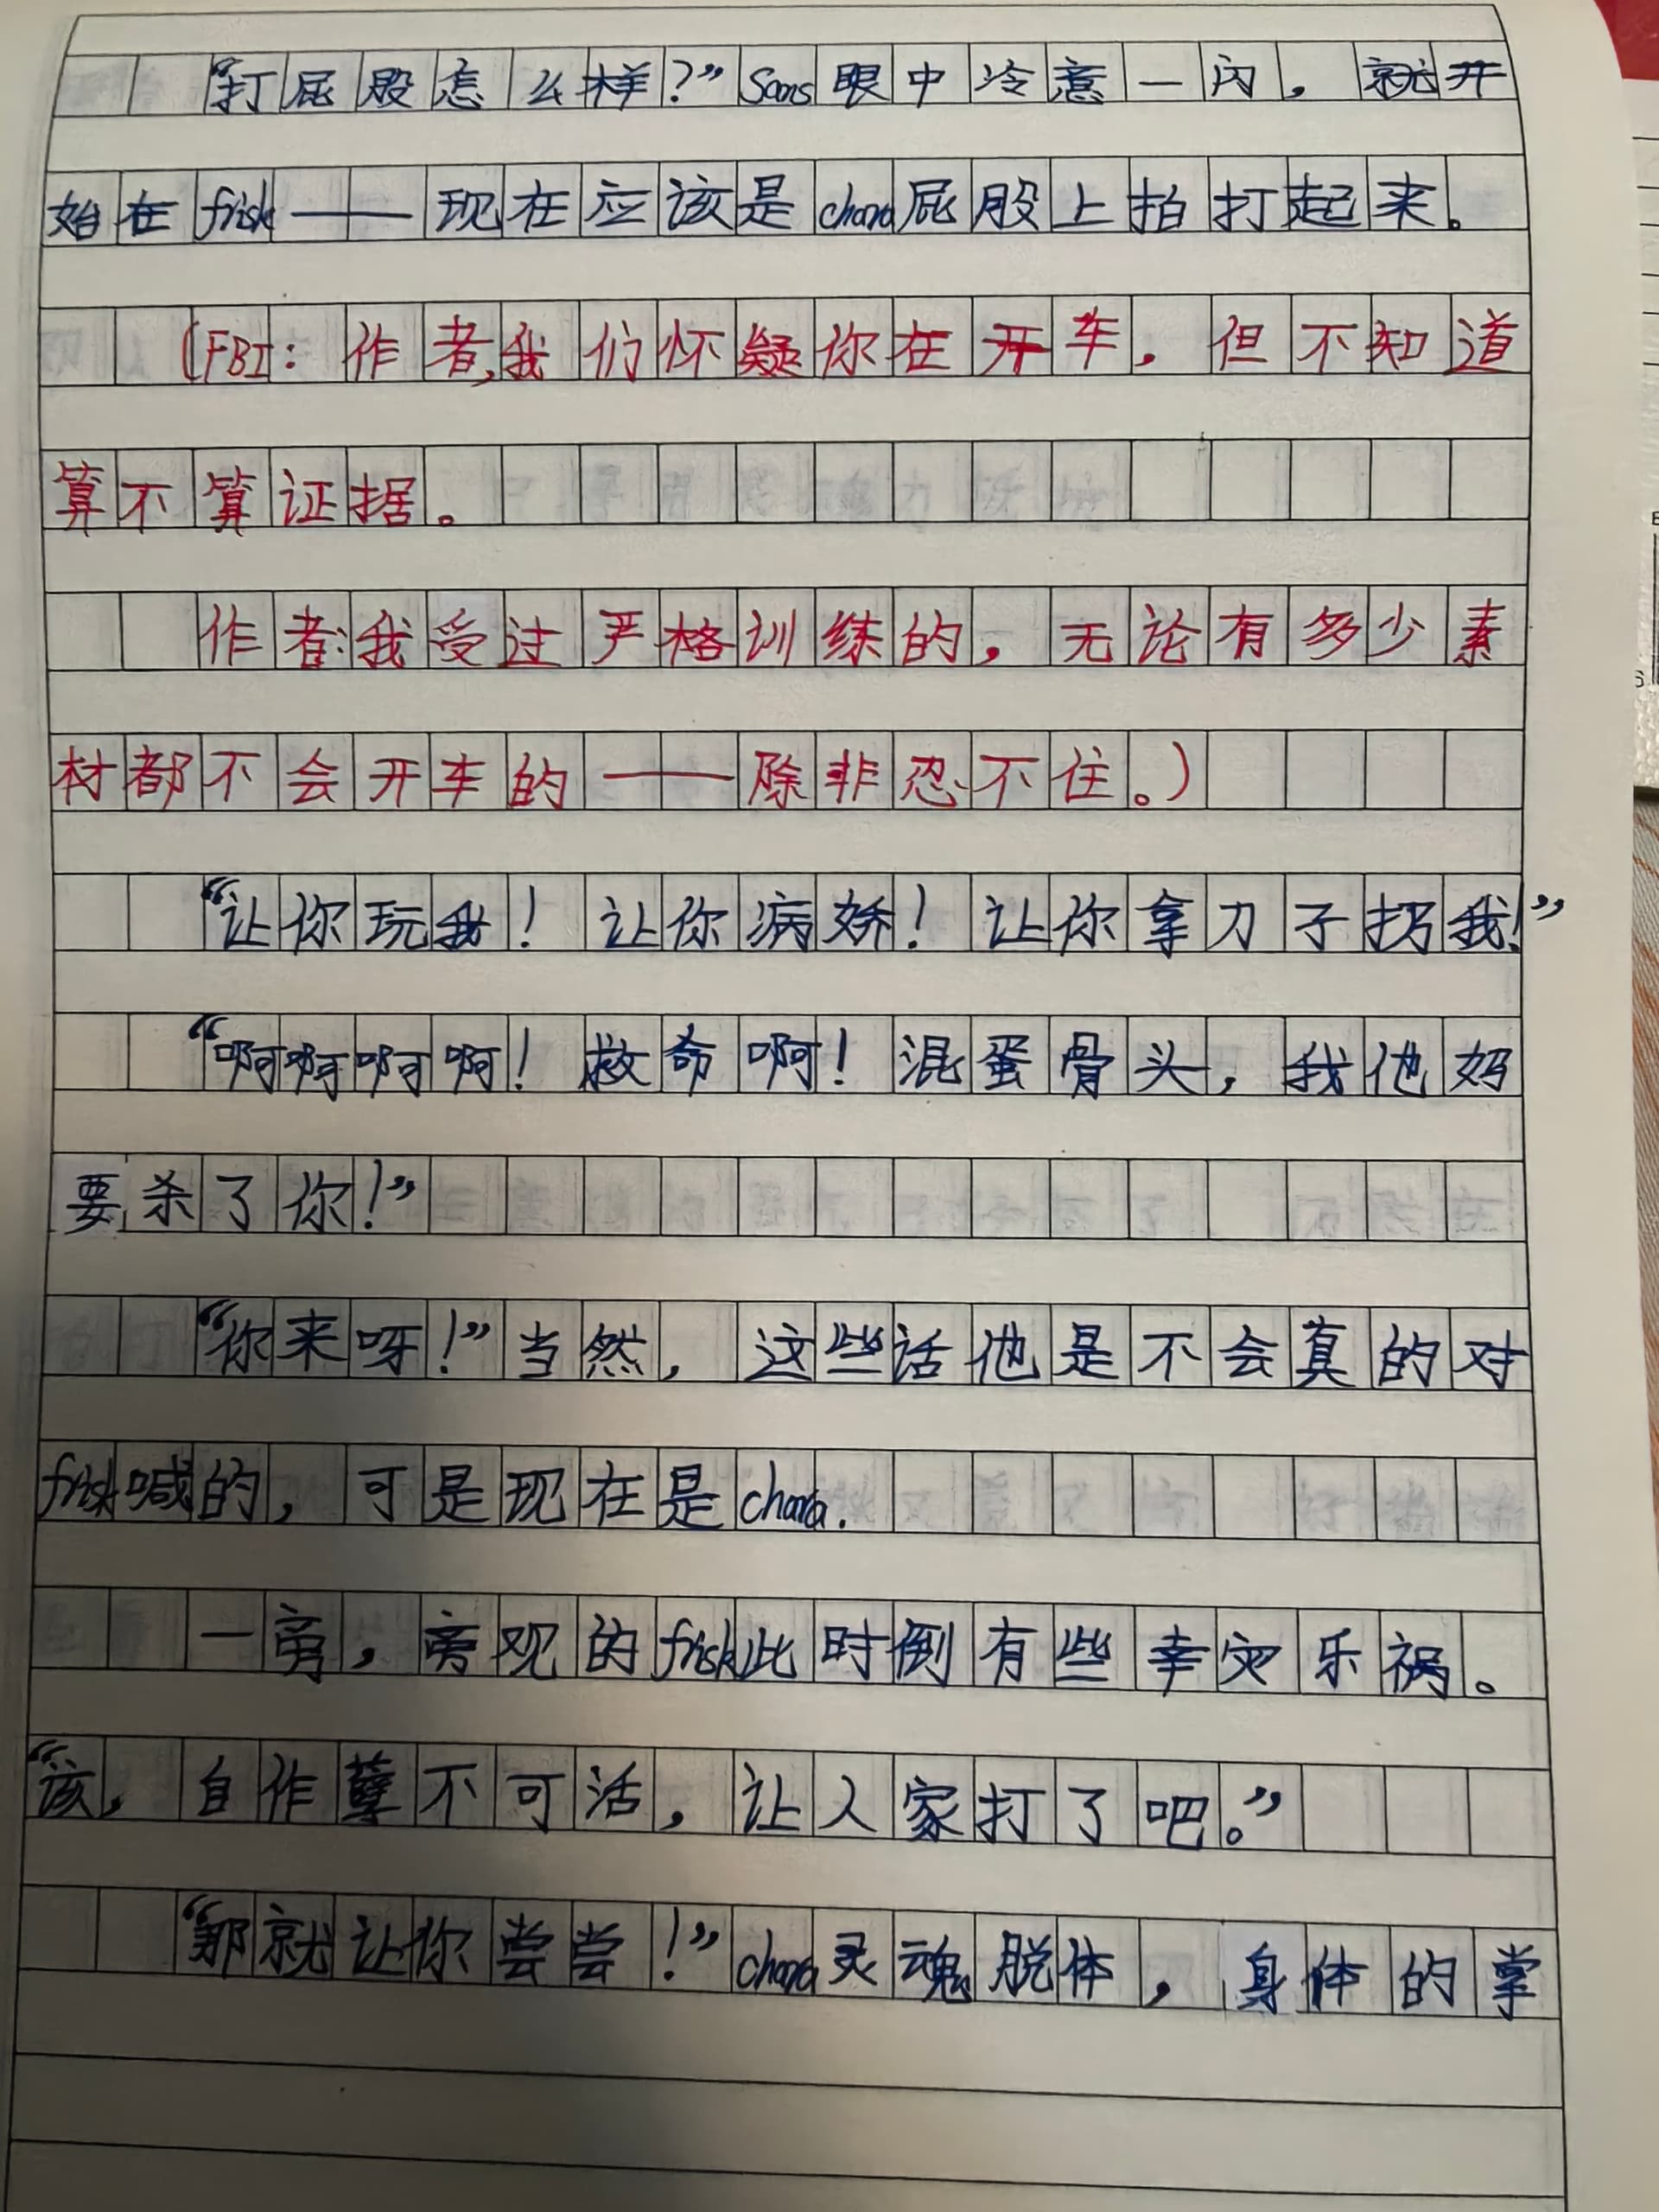 “打屁股怎么样？”Sans眼中冷意一闪，就开
始在frisk——现在应该是chara屁股上拍打起来。
（FBI：作者，我们怀疑你在开车，但不知道
算不算证据。
作者：我受过严格训练的，无论有多少素
材都不会开车的——除非忍不住。）
“让你玩我！让你病娇！让你拿刀子拐我！”
“啊啊啊啊！救命啊！混蛋骨头，我他妈
要杀了你！”
“你来呀！”当然，这些话他是不会真的对
frisk喊的，可是现在是chara.
一旁，旁观的frisk此时倒有些幸灾乐祸。
“该，自作孽不可活，让人家打了吧。”
“那就让你尝尝！”chara灵魂脱体，身体的掌